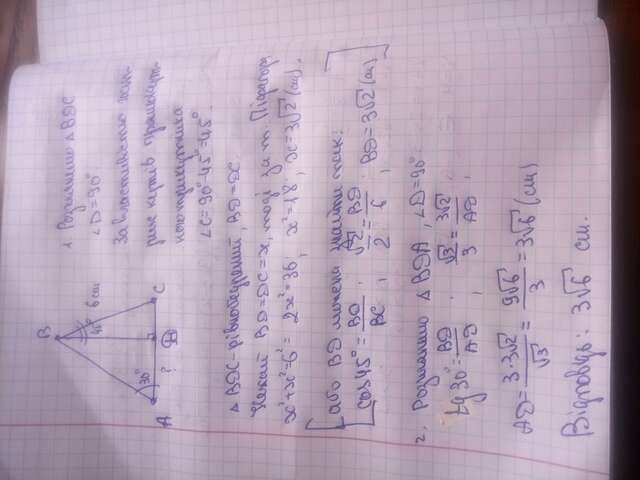 B
45°
6 см
30°
?
A
D
C
1. Розглянемо △BDC
∠D=90°
За властивістю гост-
рих кутів прямокут-
ного трикутника
∠C=90°-45°=45°.
△BDC-рівнобедрений, BD=DC.
Нехай BD=DC=x, тоді за т. Піфагора
x²+x²=6², 2x²=36, x²=18, x=3√2 (см).
[або BD можна знайти так:
cos45°=BD/BC, √2/2=BD/6, BD=3√2 (см)]
2. Розглянемо △BDA, ∠D=90°.
tg30°=BD/AD, √3/3=3√2/AD,
AD=3·3√2/√3=9√6/3=3√6 (см)
Відповідь: 3√6 см.